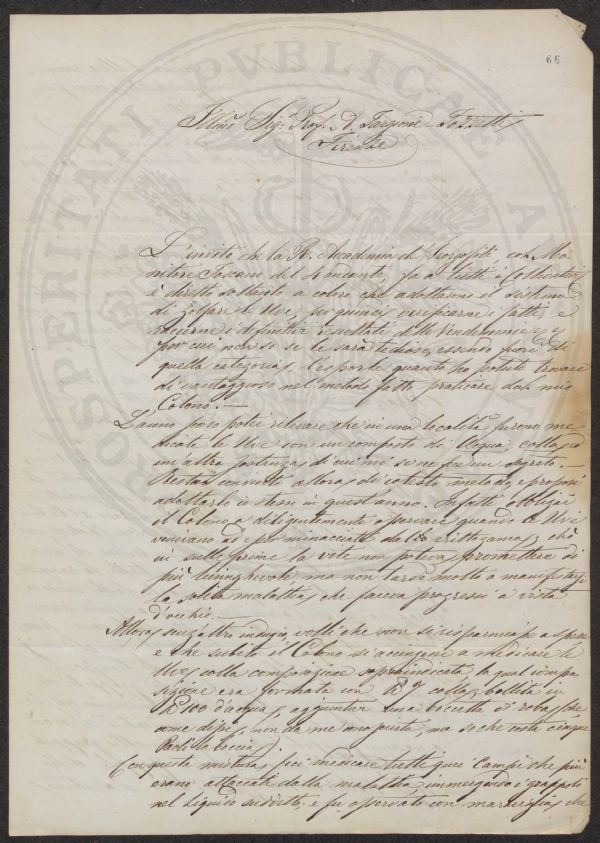 66
Illmo Sigr Prof. A. Targioni Tozzetti
Firenze
L'invito che la R. Accademia dei Georgofili, con Mo-
nitore Toscano del 4 andante, fa a tutti i coltivatori
è diretto soltanto a coloro che adottarono il sistema
di zolfare le Uve, per quindi verificarne i fatti e
i definitivi resultati della Vendemmia, e
per cui non so se le sarà tedioso, essendo fuori di
quella categoria, l'esporle quanto ho potuto trovare
di vantaggioso nel metodo fatto praticare dal mio
Colono.—
L'anno passo potei rilevare che in una località furono me-
dicate le Uve con un composto di Acqua, Colla, ed
un'altra sostanza, di cui mi se ne fece un segreto.—
Restai convinto allora di cotesto metodo, e proposi
adottarlo io stesso in quest'anno. Infatti obbligai
il Colono a diligentemente osservare quando le Uve
venivano ad esser minacciate dalla crittogama, chè
in sulle prime la vite non poteva promettere di
più lusinghevole, ma non tardò molto a manifestarsi
la solita malattia, che faceva progressi a vista
d'occhio.—
Allora, senz'altro indugio, volli che non si risparmiasse a spese
e che subito il Colono si accingesse a medicare le
Uve colla composizione sopraindicata, la qual compo-
sizione era formata con lb 7 colla, bollita in
lb 100 d'acqua, aggiuntavi una boccetta di roba, (che
come dissi, non da me conosciuta, ma so che costa cinque
Paoli la boccia).
Con questa mistura, feci medicare tutti quei Campi che più
erano attaccati dalla malattia immergendo i grappoli
nel liquido suddetto, e fu osservato con maraviglia, che